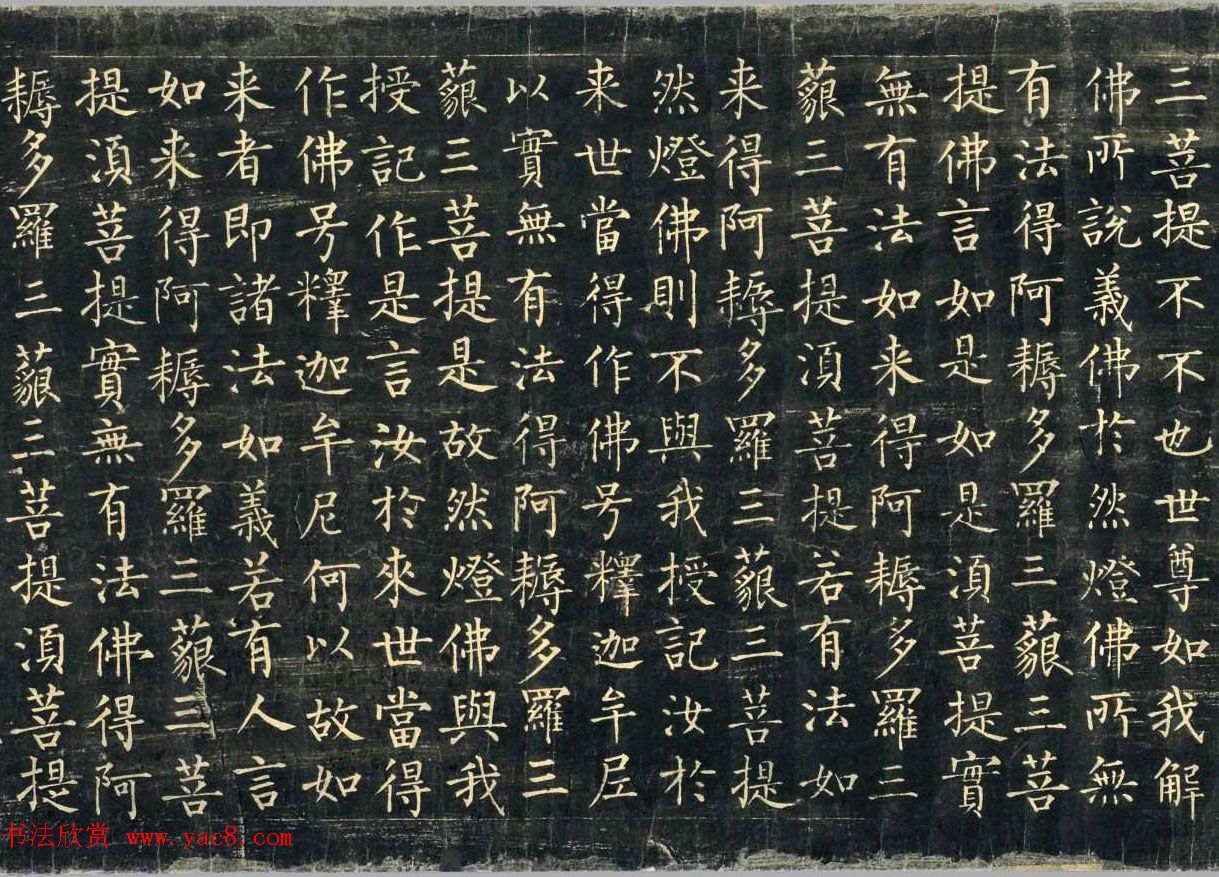 三菩提不不也世尊如我解
佛所說義佛於然燈佛所無
有法得阿耨多羅三藐三菩
提佛言如是如是湏菩提實
無有法如来得阿耨多羅三
藐三菩提湏菩提若有法如
来得阿耨多羅三藐三菩提
然燈佛則不與我授記汝於
来世當得作佛号釋迦牟尼
以實無有法得阿耨多羅三
藐三菩提是故然燈佛與我
授記作是言汝於來世當得
作佛号釋迦牟尼何以故如
来者即諸法如義若有人言
如来得阿耨多羅三藐三菩
提湏菩提實無有法佛得阿
耨多羅三藐三菩提湏菩提
书法欣赏 www.yac8.com